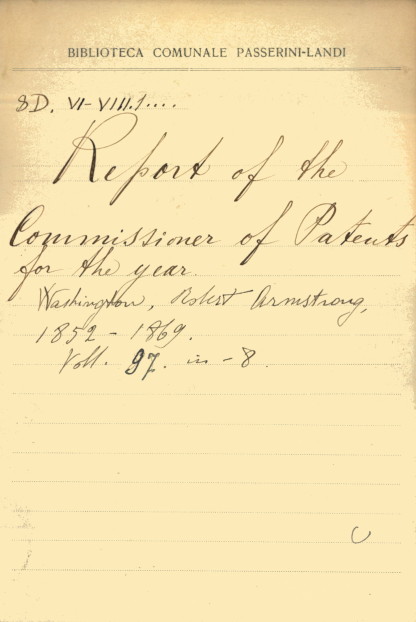 BIBLIOTECA COMUNALE PASSERINI-LANDI
8D. VI-VIII.1....
Report of the
Commissioner of Patents
for the year.
Washington, Robert Armstrong,
1852 - 1869.
Voll. 97. in - 8.